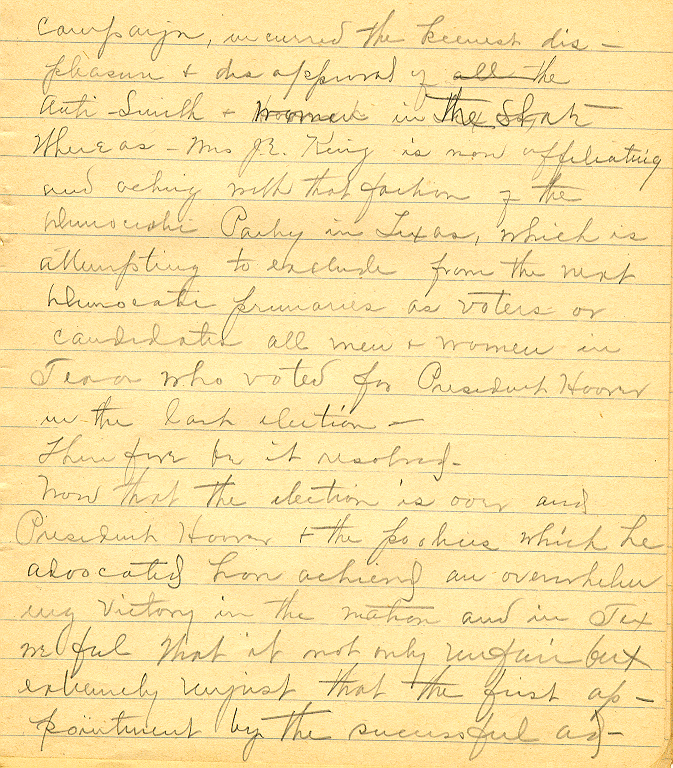 campaign, incurred the keenest dis-
pleasure & disapproval of all the
Anti-Smith & women in the State
Whereas - Mrs J.E. King is now affiliating
and acting with that faction of the
Democratic Party in Texas, which is
attempting to exclude from the next
Democratic primaries as voters or
candidates all men & women in
Texas who voted for President Hoover
in the last election -
Therefore be it resolved -
Now that the election is over and
President Hoover & the policies which he
advocated have achieved an overwhelm
ing victory in the nation and in Tex
we feel that it not only unfair but
extremely unjust that the first ap-
pointment by the successful ad-